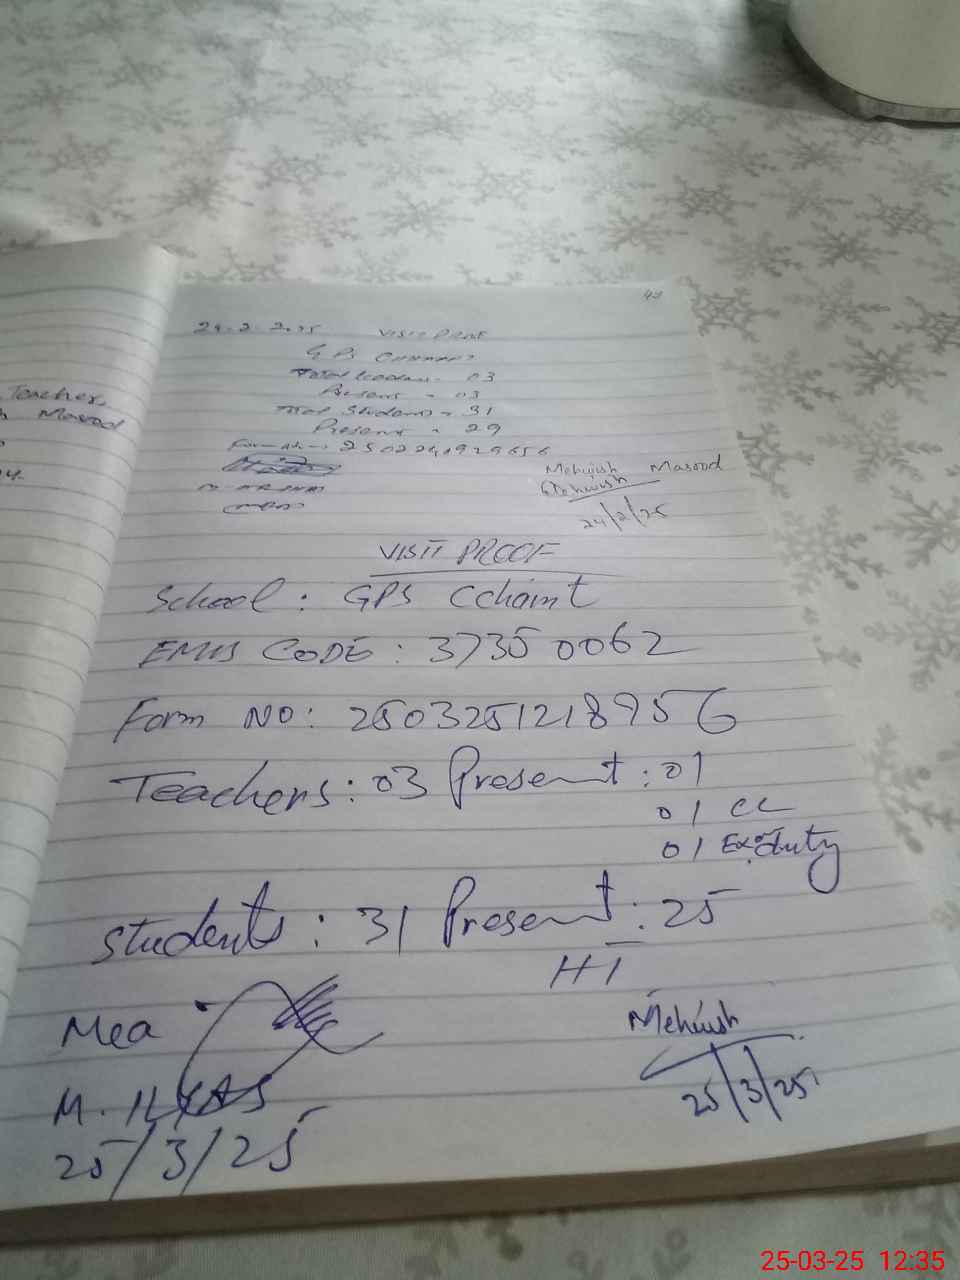 42
24.2.2025 VISIT PROOF
GPS
Total Teachers - 03
Present - 03
Total Students - 31
Present - 29
Mehwish Masood
Mehwish
24/2/25
Teacher
Masood
VISIT PROOF
School : GPS Cchaint
EMIS CODE : 37350062
Form NO: 2503251218956
Teachers : 03 Present : 01
01 CL
01 Ex. duty
Students : 31 Present : 25
HT
Mea
M. ILYAS
25/3/25
Mehwish
25/3/25
25-03-25 12:35